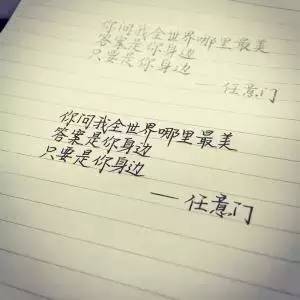 你问我全世界哪里最美
答案是你身边
只要是你身边
——任意门
你问我全世界哪里最美
答案是你身边
只要是你身边
——任意门